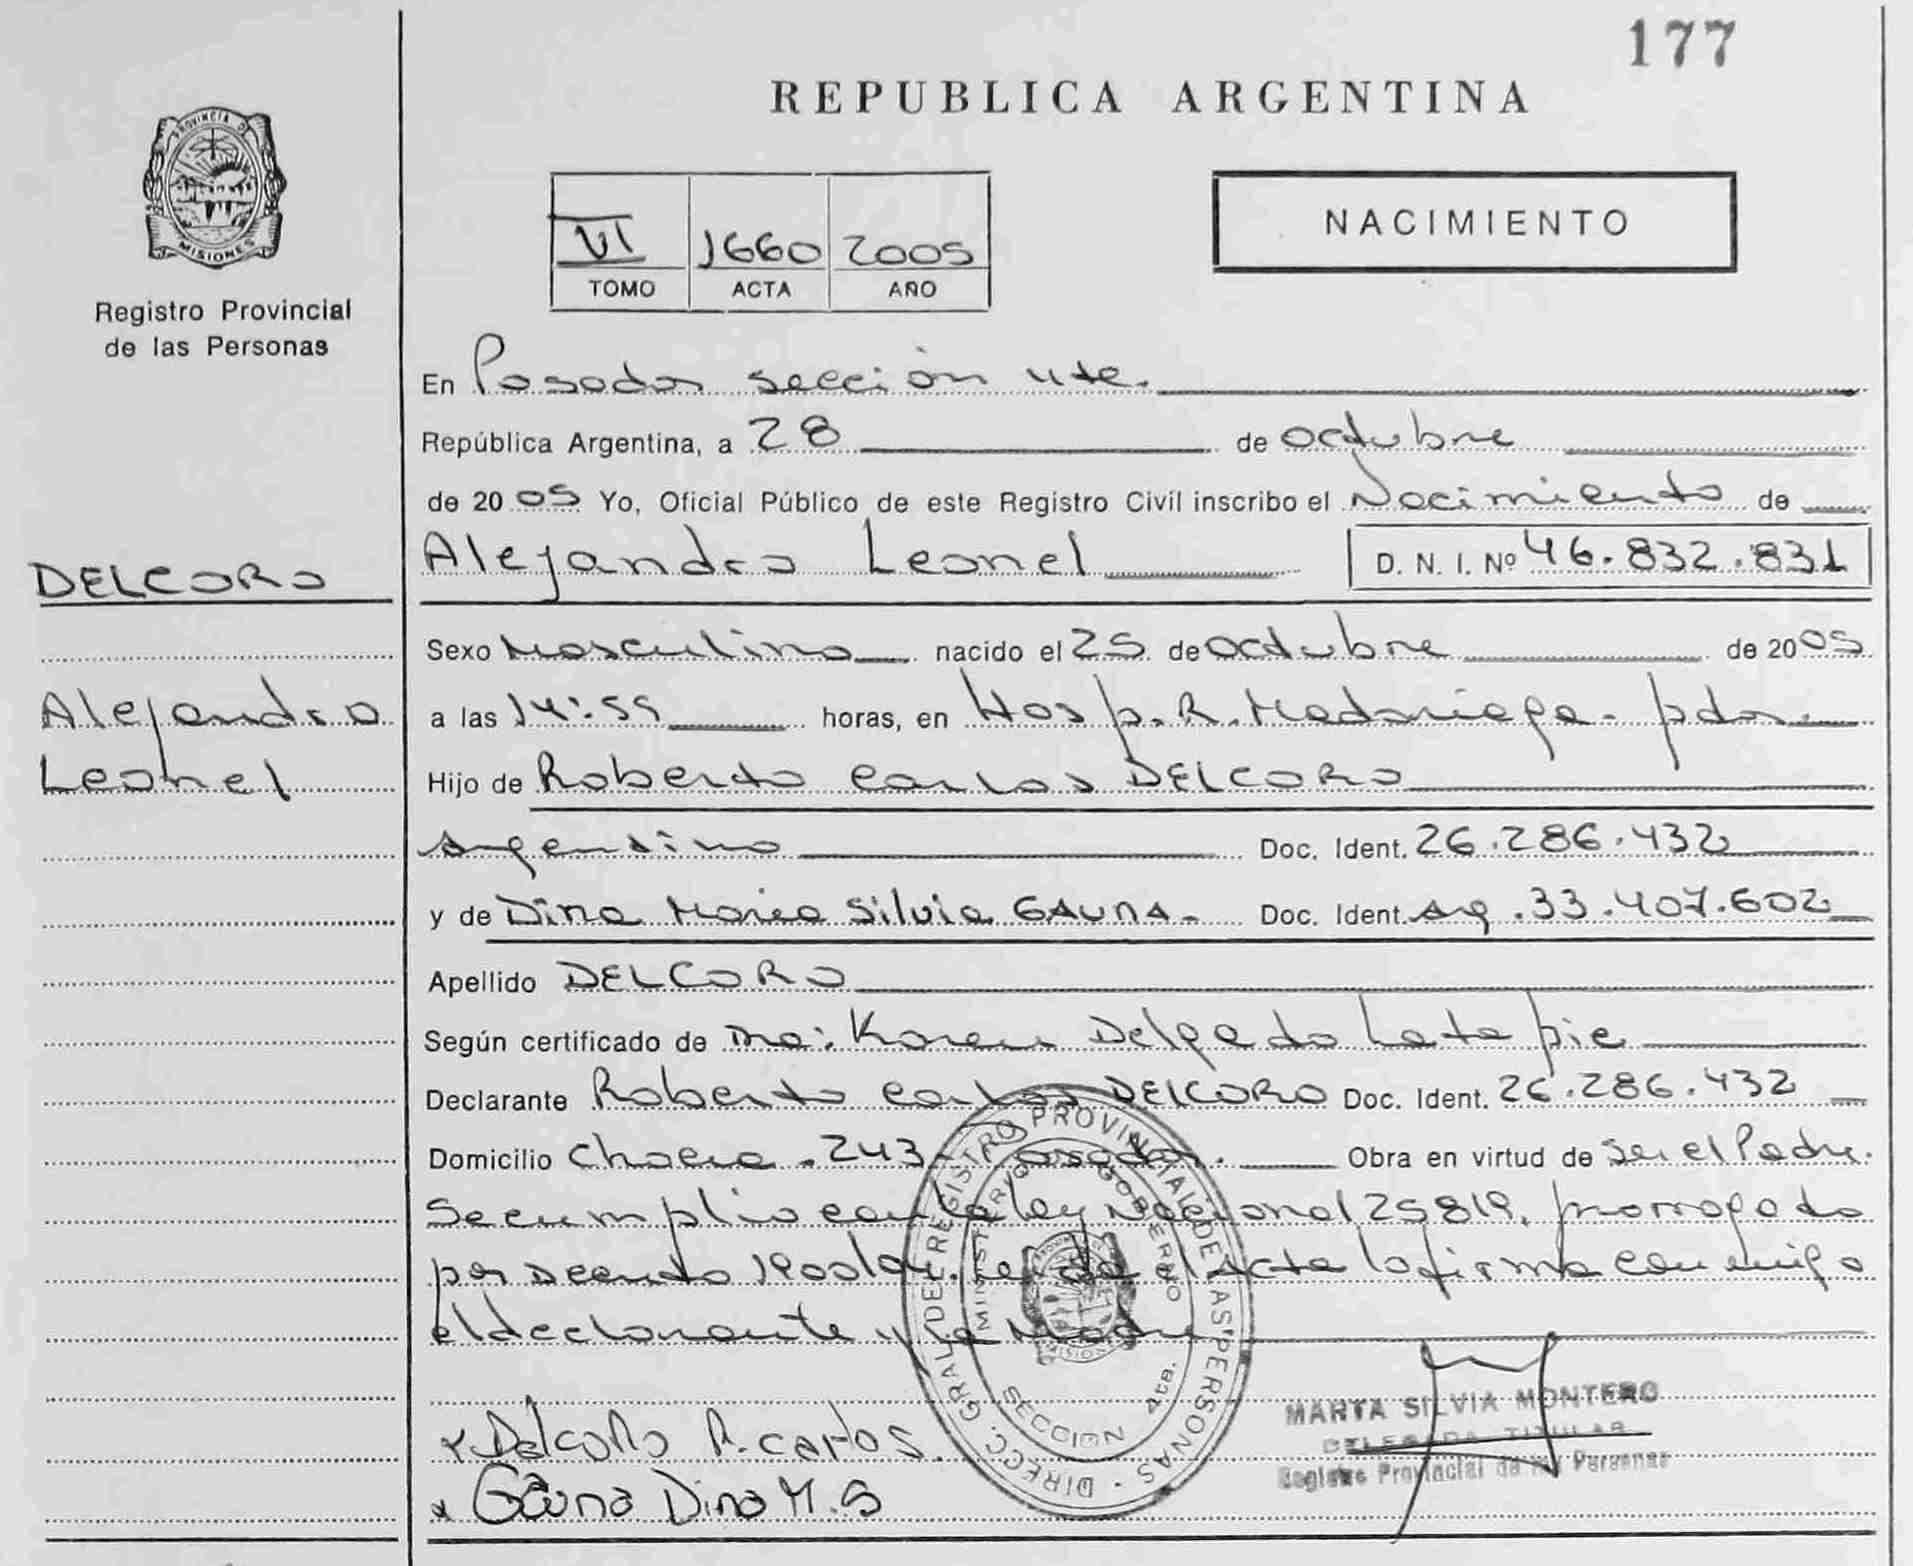 177
REPUBLICA ARGENTINA
PROVINCIA D
MISIONES
Registro Provincial
de las Personas
VI 1660 2005
TOMO ACTA AÑO
NACIMIENTO
En Posadas sección 4ta.
República Argentina, a 28 de octubre
de 2005 Yo, Oficial Público de este Registro Civil inscribo el Nacimiento de
DELCORO
Alejandro Leonel D. N. I. Nº 46.832.831
Sexo Masculino nacido el 25 de octubre de 2005
Alejandro
Leonel
a las 14:55 horas, en Hosp. R. Madariaga - pdas.
Hijo de Roberto Carlos DELCORO
argentino Doc. Ident. 26.286.432
y de Dina Maria Silvia GAUNA. Doc. Ident. arg. 33.407.602
Apellido DELCORO
Según certificado de Dra: Karen Delgado Latapie
Declarante Roberto Carlos DELCORO Doc. Ident. 26.286.432
Domicilio Chacra .243 - Posadas. Obra en virtud de ser el Padre.
Se cumplio con la ley Nacional 25819, prorrogado
por Decreto 1900/04. Leida el Acta la firma conmigo
el declarante y la Madre
DIRECC. GRAL. DEL REGISTRO PROVINCIAL DE LAS PERSONAS
MINISTERIO GOBIERNO
MISIONES
SECCION 4ta.
x Delcoro R. carlos.
x Gauna Dina M. S
MARTA SILVIA MONTERO
DELEGADA TITULAR
Registro Provincial de las Personas